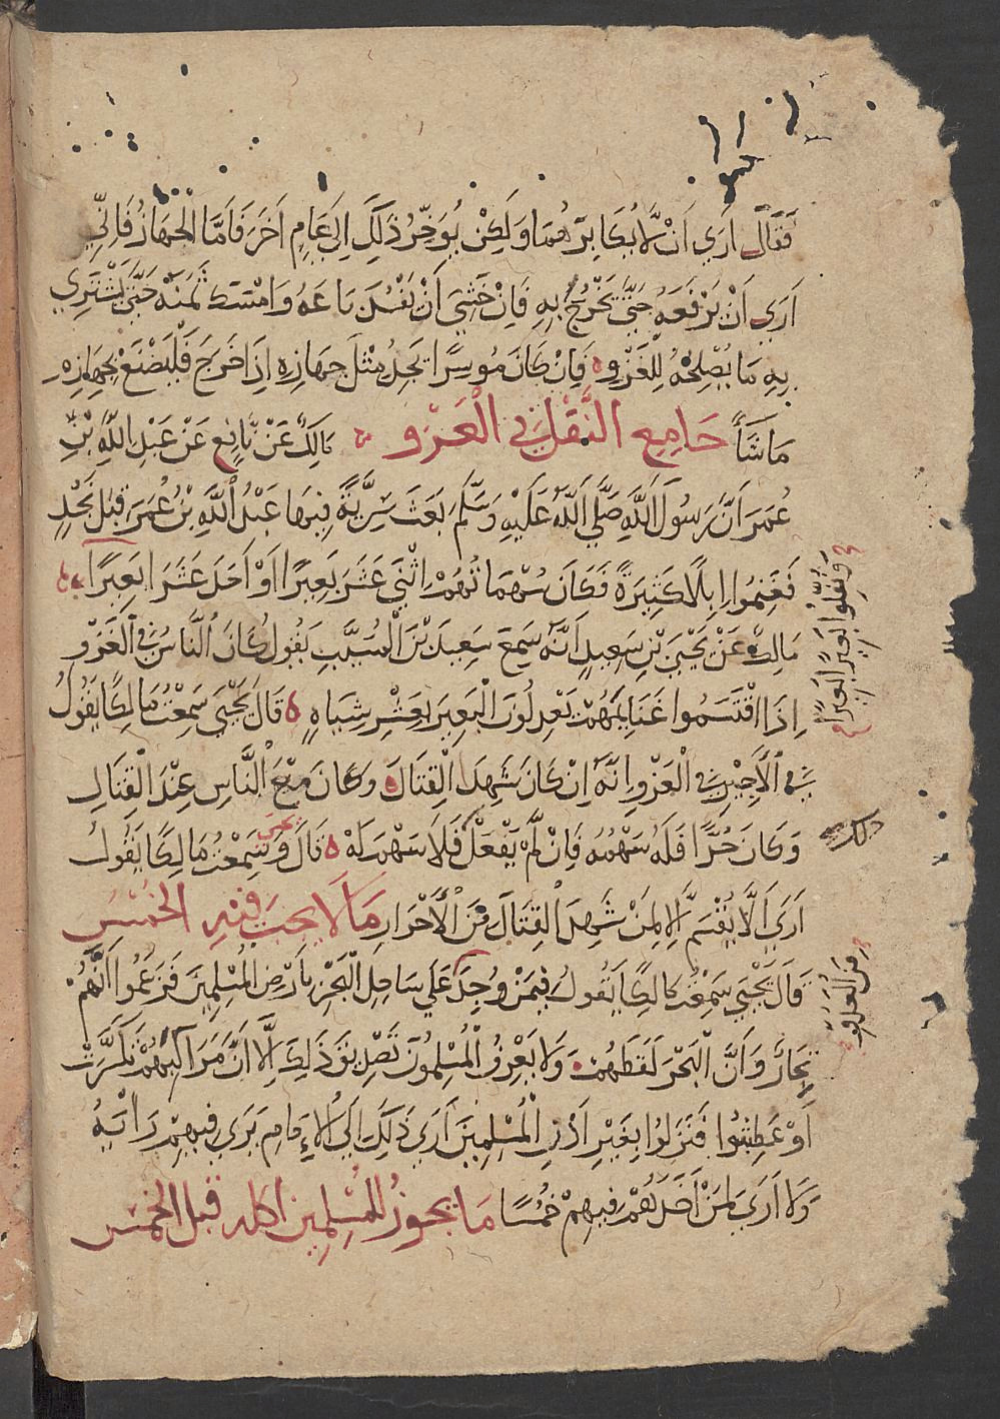 فَقَالَ اَرَي اَنْ لَّا يُكَابِرَهُمَا وَلَكِنْ يُوَخِّرُ ذَلِكَ اِلَى عَامٍ اَخَرَ فَاَمَّا الْجِهَازُ فَاِنِّي
اَرَي اَنْ يَرْفَعَهُ حَتَّى يَخْرُجَ بِهِ فَاِنْ خَشِيَ اَنْ يَفْسُدَ بَاعَهُ وَامْسَكَ ثَمَنَهُ حَتَّى يَشْتَرِي
بِهِ مَا يُصْلِحُهُ لِلْغَزْوِ فَاِنْ كَانَ مُوسِرًا يَجِدُ مِثْلَ جِهَازِهِ اِذَا خَرَجَ فَلْيَصْنَعْ بِجِهَازِهِ
مَا شَآءَ جَامِع النَّفْلِ فِي الْغَزْوِ مَالِكٌ عَنْ نَافِعٍ عَنْ عَبْدِ اللَّهِ بْنِ
عُمَرَ اَنَّ رَسُولَ اللَّهِ صَلَّي اللَّهُ عَلَيْهِ وَسَلَّمَ بَعَثَ سَرِيَّةً فِيهَا عَبْدُ اللَّهِ بْنُ عُمَرَ قِبَلَ نَجْدٍ
فَغَنِمُوا اِبِلًا كَثِيرَةً فَكَانَ سُهْمَانُهُمْ اثْنَيْ عَشَرَ بَعِيرًا اَوْ اَحَدَ عَشَرَ بَعِيرًا
وَنُفِّلُوا بَعِيرًا بَعِيرًا
مَالِكٌ عَنْ يَحْيَي بْنِ سَعِيدٍ اَنَّهُ سَمِعَ سَعِيدَ بْنَ الْمُسَيَّبِ يَقُولُ كَانَ النَّاسُ فِي الْغَزْوِ
اِذَا اقْتَسَمُوا غَنَايِمَهُمْ يَعْدِلُونَ الْبَعِيرَ بِعَشْرِ شِيَاهٍ قَالَ يَحْيَي سَمِعْتُ مَالِكًا يَقُولُ
فِي الْاَجِيرِ فِي الْغَزْوِ اِنَّهُ اِنْ كَانَ شَهِدَ الْقِتَالَ وَكَانَ مَعَ النَّاسِ عِنْدَ الْقِتَالِ
وَكَانَ حُرًّا فَلَهُ سَهْمُهُ فَاِنْ لَّمْ يَفْعَلْ فَلَا سَهْمَ لَهُ قَالَ يحيى وَسَمِعْتُ مَالِكًا يَقُولُ
ذلك
اَرَي اَلَّا يُقْسَمَ اِلَّا لِمَنْ شَهِدَ الْقِتَالَ مِنَ الْاَحْرَارِ مَا لَا يجب فيه الخُمُسُ
قَالَ يَحْيَي سَمِعْتُ مَالِكًا يَقُولُ فِيمَنْ وُجِدَ عَلَي سَاحِلِ الْبَحْرِ بِاَرْضِ الْمُسْلِمِينَ فَزَعَمُوا اَنَّهُمْ
مِنَ الْعَدُوِّ
تُجَّارٌ وَاَنَّ الْبَحْرَ لَفَظَهُمْ وَلَا يَعْرِفُ الْمُسْلِمُونَ تَصْدِيقَ ذَلِكَ اِلَّا اَنَّ مَرَاكِبَهُمْ تَكَسَّرَتْ
اَوْ عَطِشُوا فَنَزَلُوا بِغَيْرِ اِذْنِ الْمُسْلِمِينَ اَرَي ذَلِكَ اِلَى الْاِمَامِ يَرَي فِيهِمْ رَاْيَهُ
وَلَا اَرَي لِمَنْ اَخَذَهُمْ فِيهِمْ خُمُسًا مَا يجوزُ للْمُسْلِمِين اكله قبل الخمس